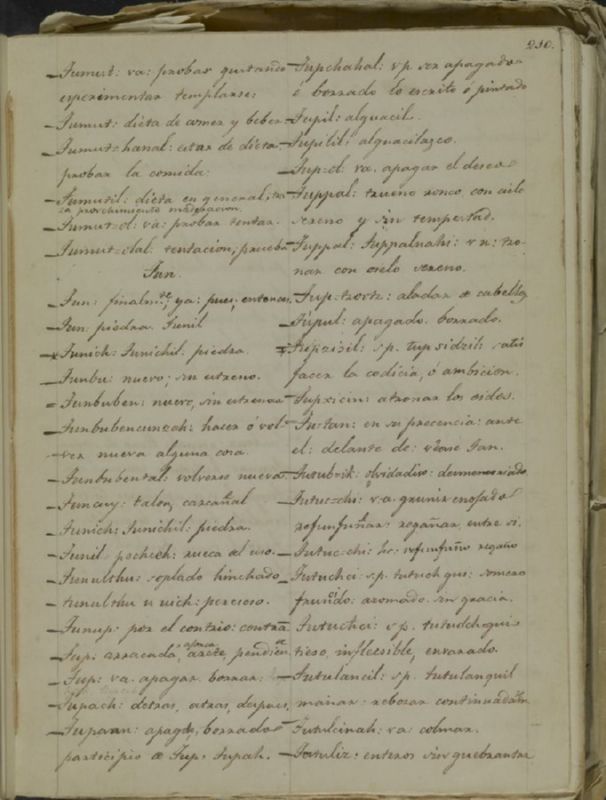 210.
Tumut: va: probar gustando
esperimentar templanse:
Tumut: dieta de comer y beber
Tumut=hanal: estar de dieta
probar la comida:
Tumutil: dieta en general,
Tumut=ol: va: probar tentar.
Tumut=olal: tentacion, prueba
Tun.
Tun: finalm.te, ya: pues, entonces
Tun piedra. Tunil
Tunich: Tunichil: piedra.
Tunbu: nuevo; sin estreno.
Tunbuben: nuevo, sin estrenar
Tunbubencunzah: hacer ó vol-
ver nueva alguna cosa.
Tunbubental: volverse nueva.
Tuncuy: talon, carcañal
Tunich: Tunichil: piedra.
Tunil pechech: rueca del uso.
Tunulthu: soplado hinchado
tunulthu u uich: perezoso.
Tunup: por el contrio: contra
Tup: arracada, arete pendien
Tup: va. apagar. borrar:
Tupach: detras, atras, despues,
Tupaan: apagdo, borrado
participio de Tup: tupah.
Tupchahal: vp. ser apagado
é borrado lo escrito ó pintado
Tupil: alguacil.
Tupilil: alguacilazgo.
Tup=ol: va. apagar el deseo
Tuppal: trueno ronco, con cielo
sereno y sin tempestad.
Tuppal: Tuppalnahi: vn: tro-
nar con cielo sereno.
Tup=tzotz: aladar de cabellos
Tupul: apagado. borrado.
Tupzizil: sp. tupsidzil: satis
facer la codicia, ó ambicion.
Tupxicin: atronar los oidos.
Tutan: en su precencia: ante
el: delante de: vease Tan.
Tutubrik: olvidadizo: desmemoriado
Tutuc=chi: va. grunir enojado
refunfuñar: regañar entre si.
Tutuc=chi: hc: refunfuño regaño
Tutuchci: sp. tutuch qus: somero
fruncido: asomado sin gracia.
Tutuchci: sp. tutudchqui
tieso, inflecsible, envarado.
Tutulancil: sp. tutulanquil
manar: rebosar continuadam
Tutulcinah: va: colmar.
Tutuliz: enteros sin quebrantar